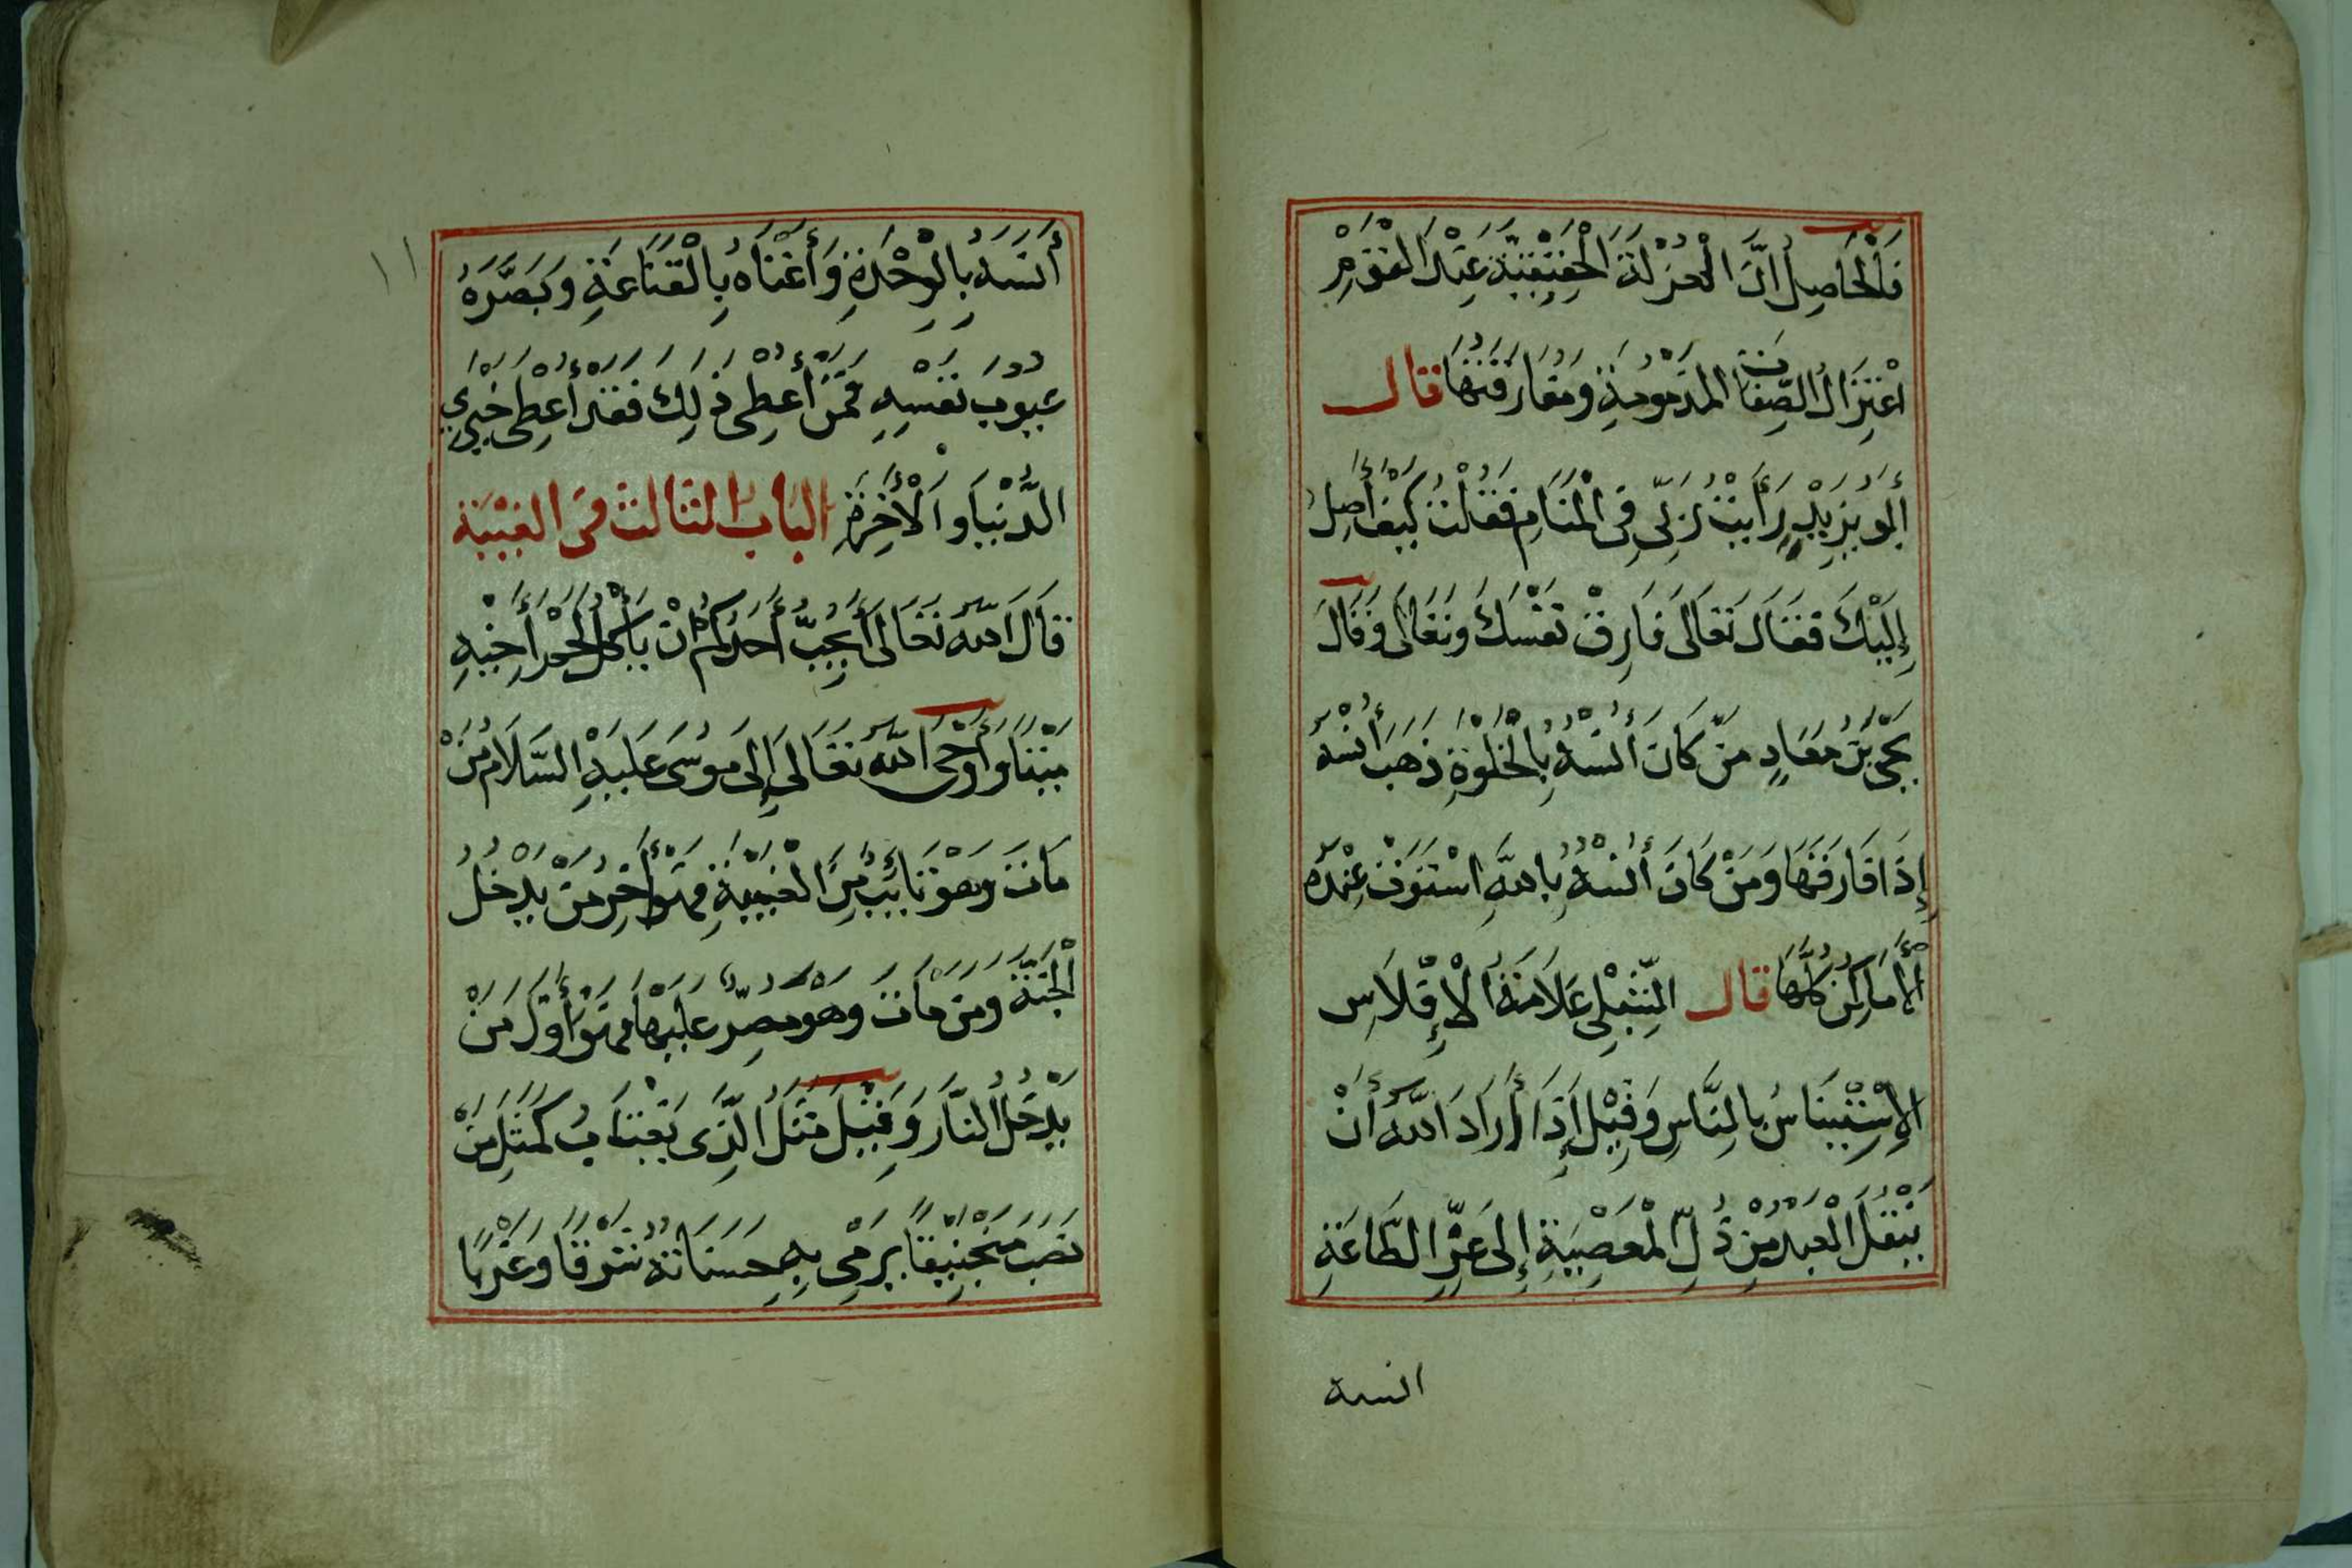 فَالْحَاصِلُ اَنَّ الْعُزْلَةَ الْحَقِيْقِيَّةَ عِنْدَ الْقَوْمِ
اعْتِزَالُ الصِّفَاتِ الْمَذْمُوْمَةِ وَمُفَارَقَتُهَا قال
أَبُو يَزِيْدٍ رَأَيْتُ رَبِّى فِى الْمَنَامِ فَقُلْتُ كَيْفَ أَصِلُ
إِلَيْكَ فَقَالَ تَعَالَى فَارِقْ نَفْسَكَ وَتَعَالَ وَقَالَ
يَحْيَى بْنُ مُعَاذٍ مَنْ كَانَ أُنْسُهُ بِالْخَلْوَةِ ذَهَبَ أُنْسُهُ
إِذَا فَارَقَهَا وَمَنْ كَانَ أُنْسُهُ بِاللهِ اسْتَوَتْ عِنْدَهُ
الْأَمَاكِنُ كُلُّهَا قال الشِّبْلِى عَلَامَةُ الْإِفْلَاسِ
الْإِسْتِيْنَاسُ بِالنَّاسِ وَقِيْلَ إِذَا أَرَادَ اللهُ أَنْ
يَنْقُلَ الْعَبْدَ مِنْ ذُلِّ الْمَعْصِيَةِ إِلَى عِزِّ الطَّاعَةِ
انسه
١١
أَنَسَهُ بِالْوِحْدَةِ وَأَغْنَاهُ بِالْقَنَاعَةِ وَبَصَّرَهُ
عُيُوْبَ نَفْسِهِ فَمَنْ أُعْطِىَ ذٰلِكَ فَقَدْ أُعْطِىَ خَيْرَيِ
الدُّنْيَا وَالْأَخِرَةِ الْبَابُ الثَّالِثُ فِى الْغِيْبَةِ
قَالَ اللهُ تَعَالَى أَيُحِبُّ أَحَدُكُمْ اَنْ يَأْكُلَ لَحْمَ أَخِيْهِ
مَيْتًا وَأَوْحَى اللهُ تَعَالَى إِلَى مُوْسَى عَلَيْهِ السَّلَامُ مَنْ
مَاتَ وَهُوَ تَائِبٌ مِنَ الْغِيْبَةِ فَهُوَ أَخِرُ مَنْ يَدْخُلُ
الْجَنَّةَ وَمَنْ مَاتَ وَهُوَ مُصِرٌّ عَلَيْهَا فَهُوَ أَوَّلُ مَنْ
يَدْخُلُ النَّارَ وَقِيْلَ مَثَلُ الَّذِى يَغْتَابُ كَمَثَلِ مَنْ
نَصَبَ مَنْجَنِيْقًا يَرْمِى بِهِ حَسَنَاتَهُ شَرْقًا وَغَرْبًا